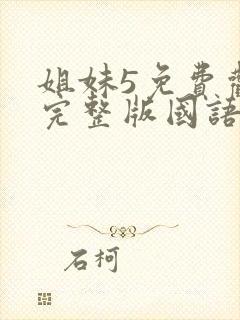 姐妹5免費
完整版國語
石柯